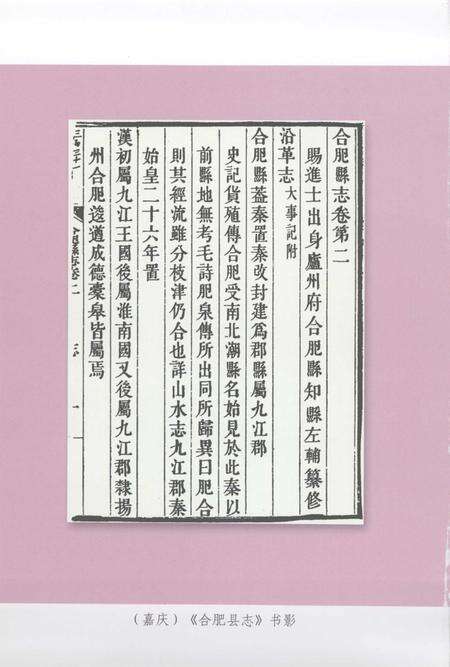 合肥縣志卷第二
賜進士出身廬州府合肥縣知縣左輔纂修
沿革志大事記附
合肥縣葢秦置秦改封建爲郡縣屬九江郡
史記貨殖傳合肥受南北潮縣名始見於此秦以
前縣地無考毛詩肥泉傳所出同所歸異曰肥合
則其經流雖分枝津仍合也詳山水志九江郡秦
始皇二十六年置
漢初屬九江王國後屬淮南國又後屬九江郡隸揚
州合肥逡遒成德橐皋皆屬焉
（嘉庆）《合肥县志》书影